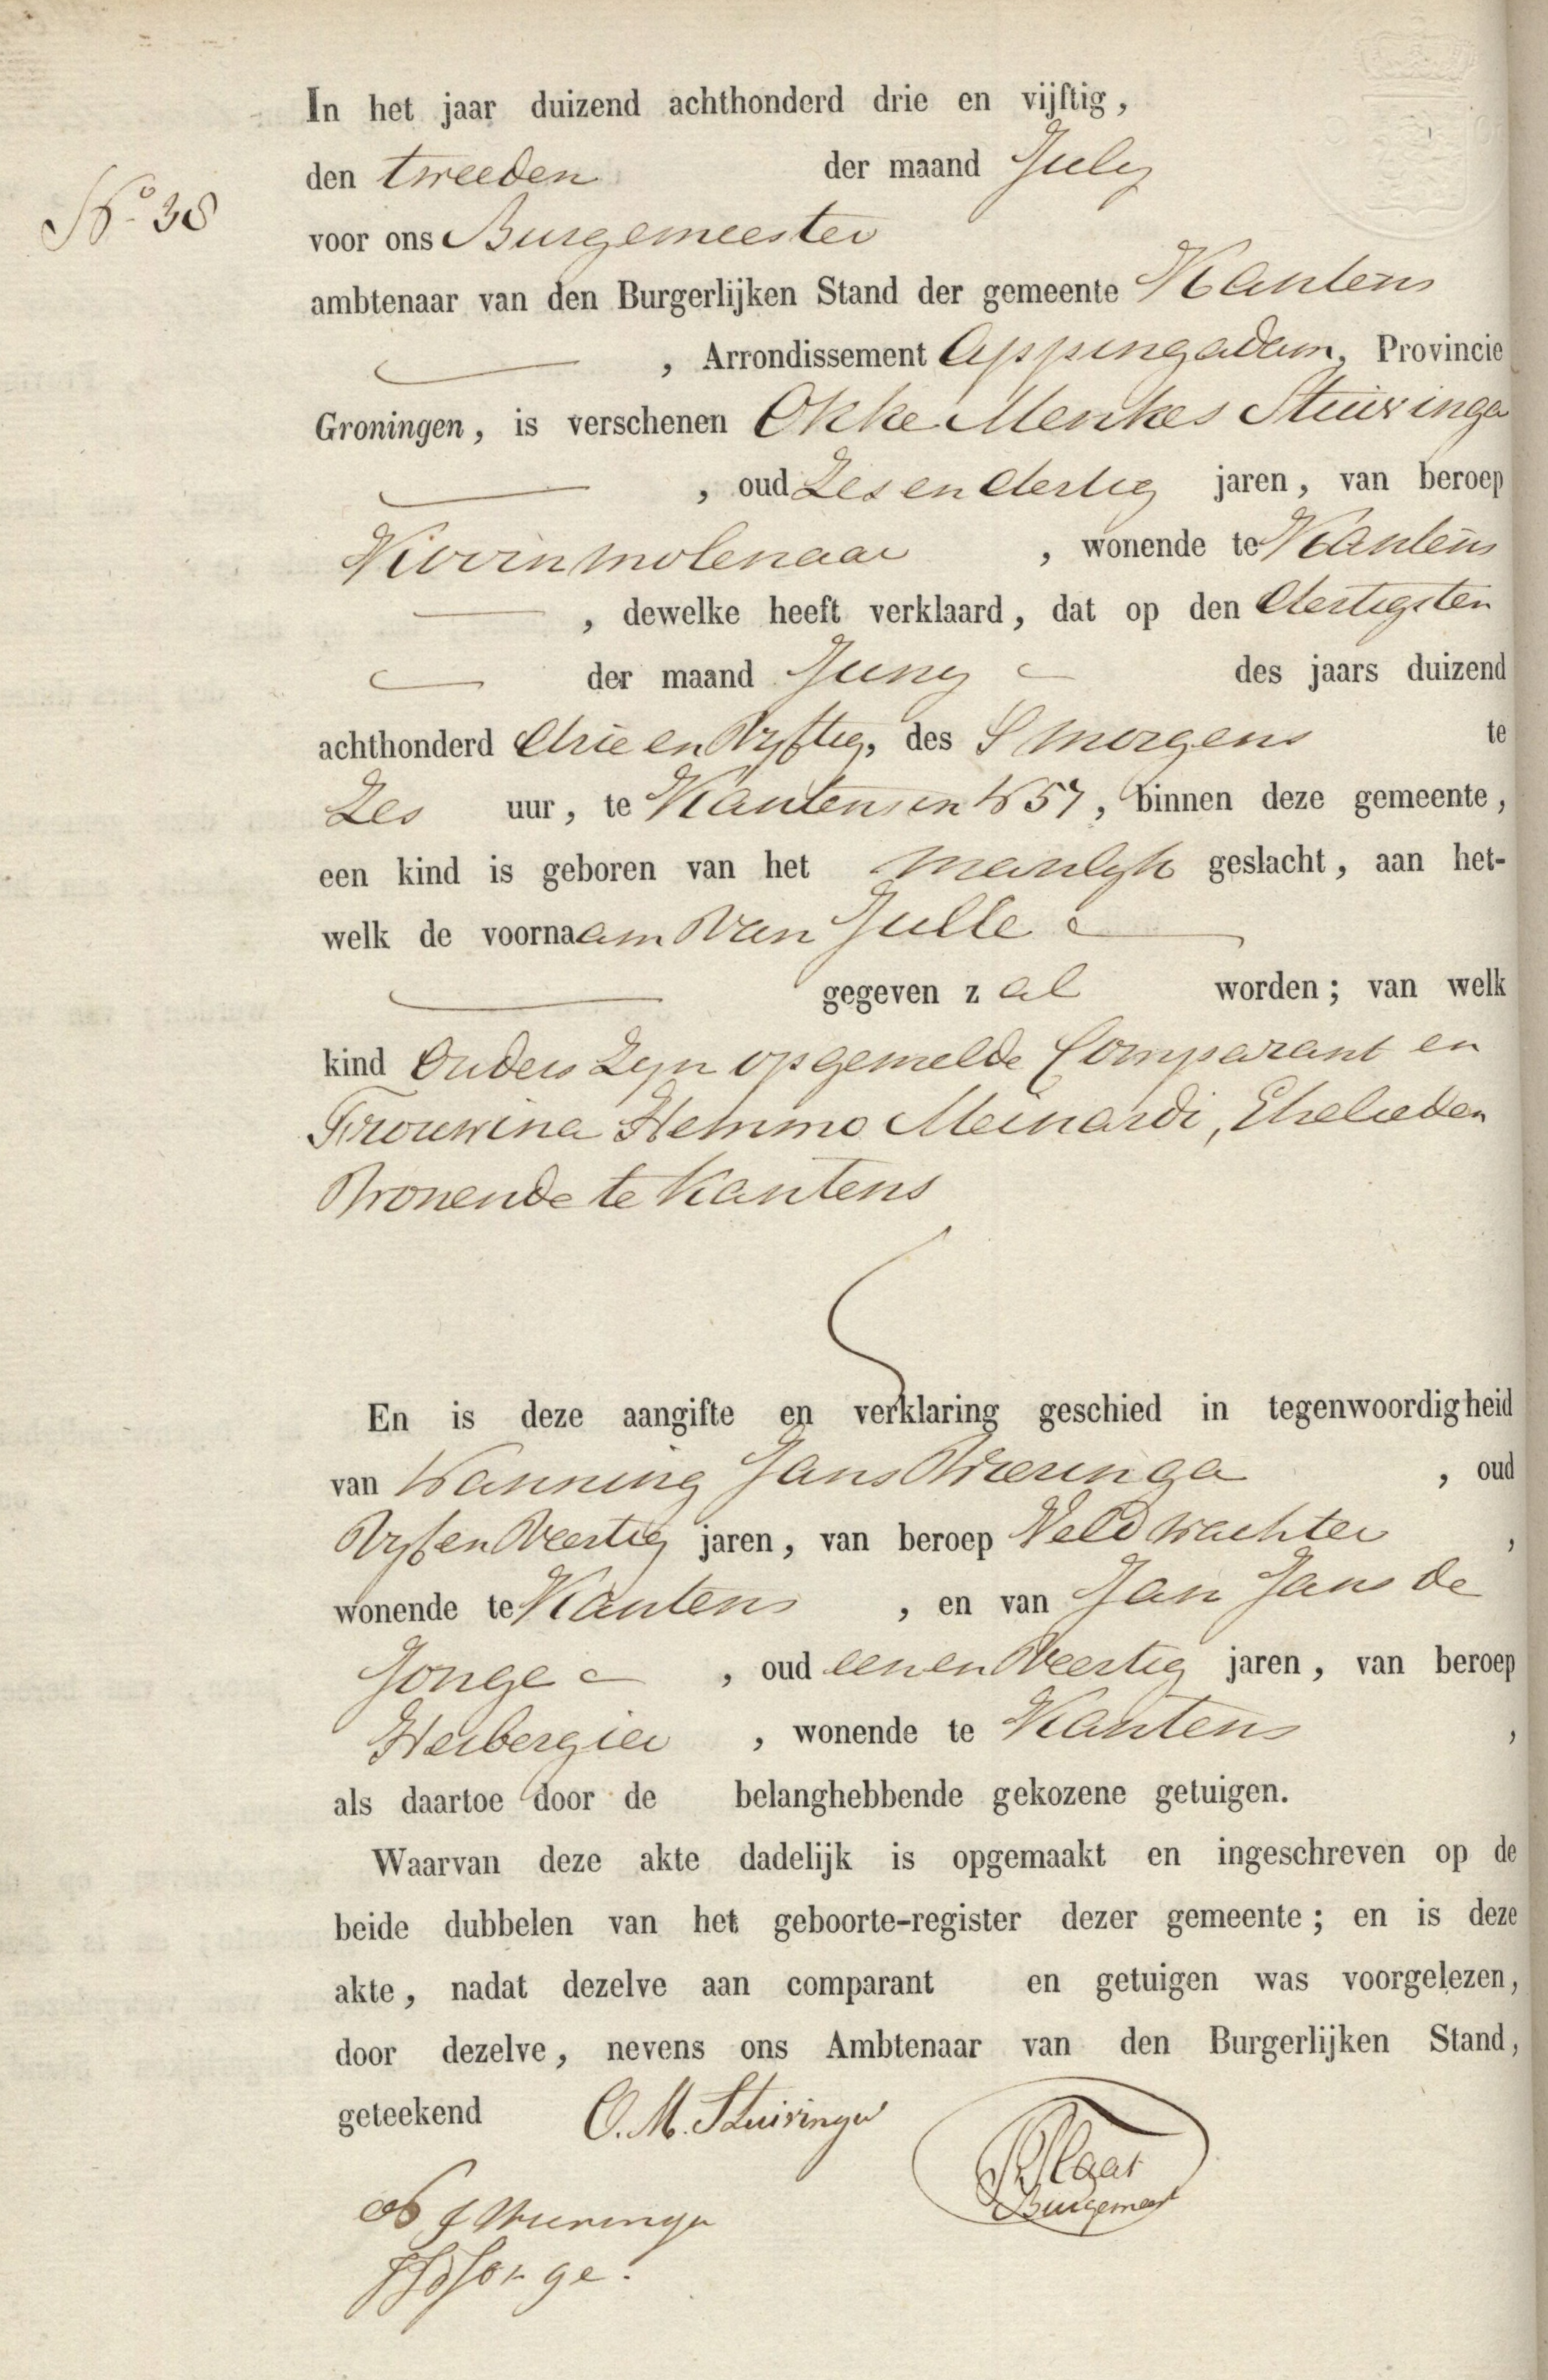 In het jaar duizend achthonderd drie en vijftig,
den tweeden der maand July
No 38
voor ons Burgemeester
ambtenaar van den Burgerlijken Stand der gemeente Kantens
, Arrondissement Appingadam, Provincie
Groningen, is verschenen Okke Menkes Stuivinga
, oud Zes en dertig jaren, van beroep
Koornmolenaar , wonende te Kantens
, dewelke heeft verklaard, dat op den dertigsten
der maand Juny des jaars duizend
achthonderd drie en Vyftig, des S morgens te
Zes uur, te Kantens in No 57, binnen deze gemeente,
een kind is geboren van het manlyk geslacht, aan het-
welk de voornaam van Julle
gegeven zal worden; van welk
kind Ouders Zyn opgemelde Comparant en
Trouwina Hemmo Meinardi, Ehelieden
Wonende te Kantens
En is deze aangifte en verklaring geschied in tegenwoordigheid
van Wanning Jans Wieringa , oud
Vyf en Veertig jaren, van beroep Veldwachter ,
wonende te Kantens , en van Jan Jans de
Jonge , oud een en Veertig jaren, van beroep
Herbergier , wonende te Kantens ,
als daartoe door de belanghebbende gekozene getuigen.
Waarvan deze akte dadelijk is opgemaakt en ingeschreven op de
beide dubbelen van het geboorte-register dezer gemeente; en is deze
akte, nadat dezelve aan comparant en getuigen was voorgelezen,
door dezelve, nevens ons Ambtenaar van den Burgerlijken Stand,
geteekend O. M. Stuivinga
Burgemeest
J Wieringa
JJ d Jonge.